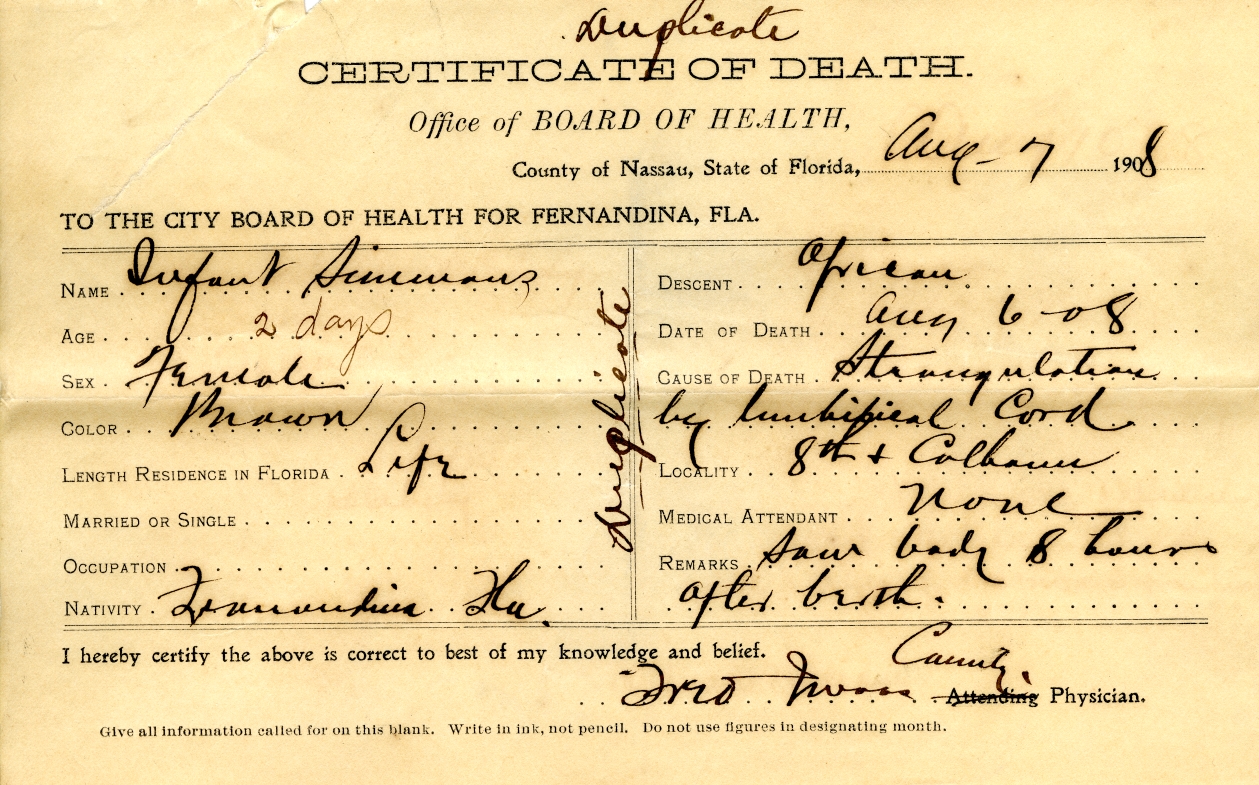 Duplicate
CERTIFICATE OF DEATH.
Office of BOARD OF HEALTH,
County of Nassau, State of Florida, Aug - 7 1908
TO THE CITY BOARD OF HEALTH FOR FERNANDINA, FLA.
NAME Infant Simmons
AGE 2 days
SEX Female
COLOR Brown
LENGTH RESIDENCE IN FLORIDA Life
MARRIED OR SINGLE
OCCUPATION
NATIVITY Fernandina Fla.
Duplicate
DESCENT African
DATE OF DEATH Aug 6-08
CAUSE OF DEATH Strangulation
by Umbilical Cord
LOCALITY 8th + Calhoun
MEDICAL ATTENDANT None
REMARKS Saw body 8 hours
after birth.
I hereby certify the above is correct to best of my knowledge and belief.
County
Attending Physician.
Give all information called for on this blank. Write in ink, not pencil. Do not use figures in designating month.